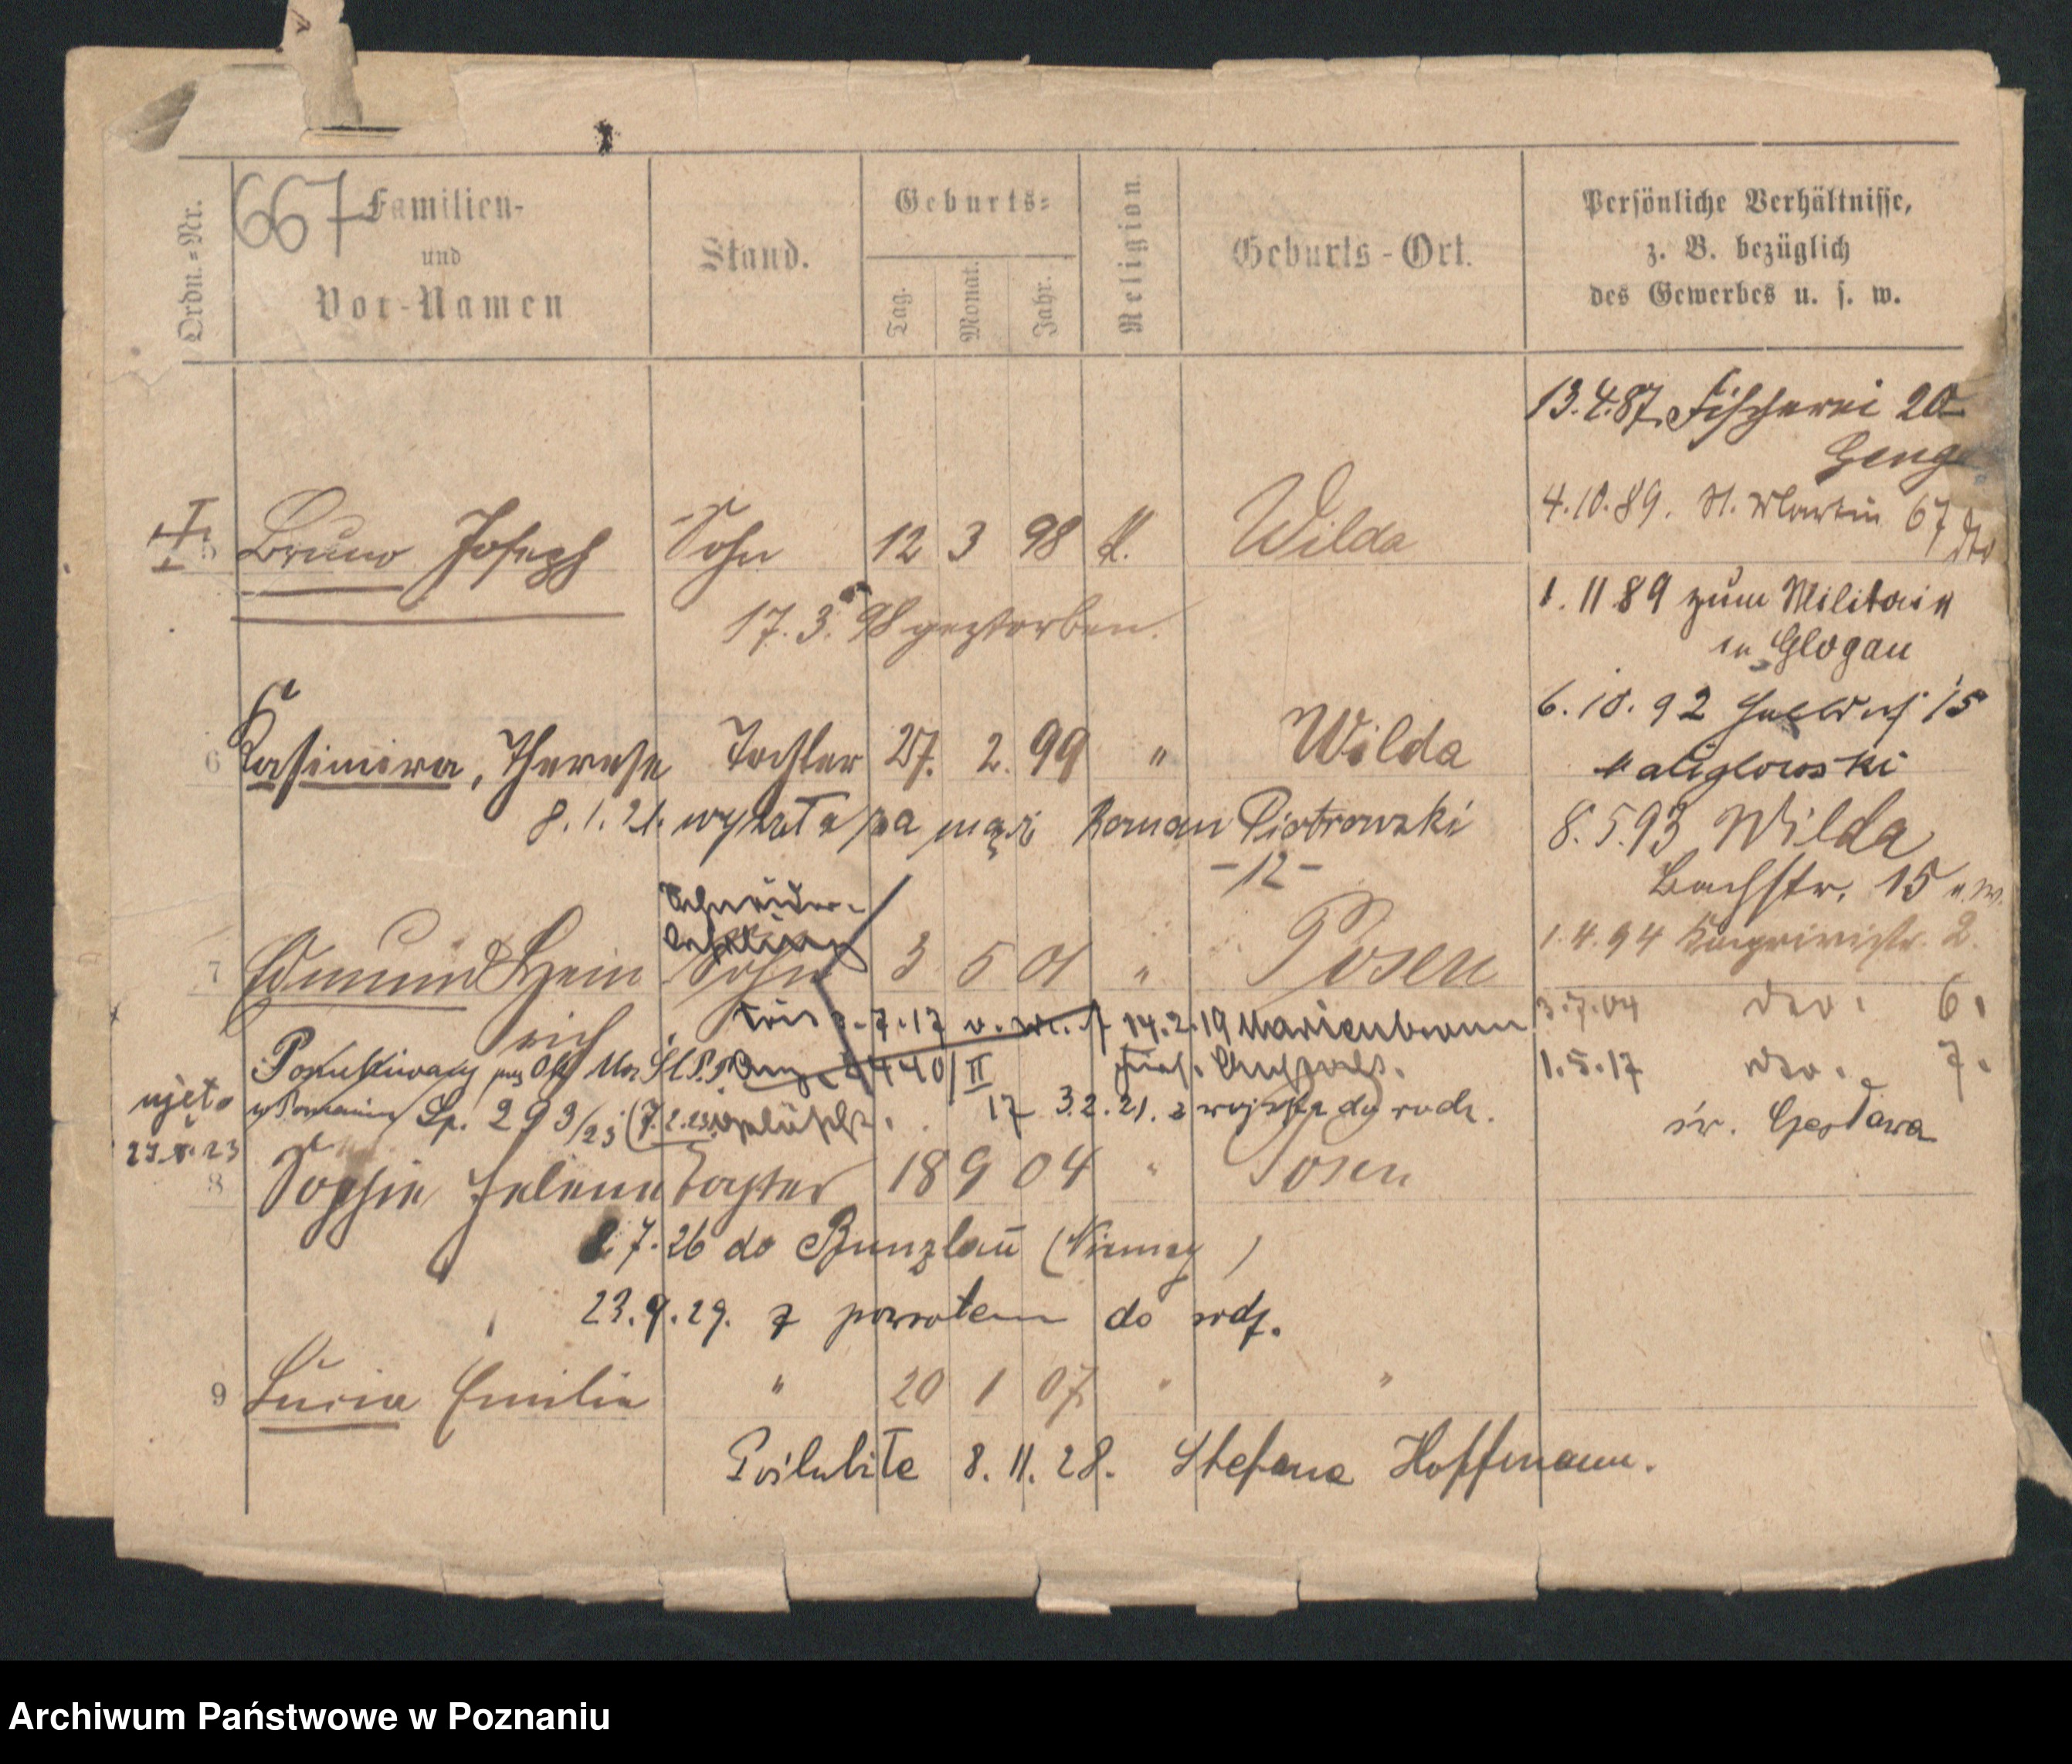 667
Ordn.-Nr.
Familien-
und
Vor-Namen
Stand.
Geburts-
Tag.
Monat.
Jahr.
Religion.
Geburts-Ort.
Persönliche Verhältnisse,
z. B. bezüglich
des Gewerbes u. s. w.
13.4.87. Fischerei 20
4.10.89. St. Martin 67
5 Bruno Joseph Sohn 12 3 98 k. Wilda
17.3.98 gestorben.
1.11 89 zum Militair
in Glogau
6.10.92 15
6 Kasimira, Therese Tochter 27. 2. 99 " Wilda
8.1.21. wyszła za mąż Roman Piotrowski
-12-
8.5.93 Wilda
Bachstr. 15
1.4.94 2.
Schneider-
Lehrling
7 Edmund Hein Sohn 3 5 01 " Posen
rich
3.-7.-17 v. 14.2.19 Marienbronn
3.7.04 dto. 6.
Poszukiwany 4440/II
1.5.17 dto. 7.
ujęto
w Poznaniu Lp. 293/23 (7.2.23) gelöscht.
17 3.2.21. z wojska do rodz.
św. Czesława
27.V.23
8 Sophie Helene Tochter 18 9 04 " Posen
7.26 do Bunzlau (Niemcy)
23.9.29. z powrotem do rdz.
9 Lucia Emilie " 20 1 07 " "
Poślubiła 8.11.28. Stefana Hoffmann.
Archiwum Państwowe w Poznaniu